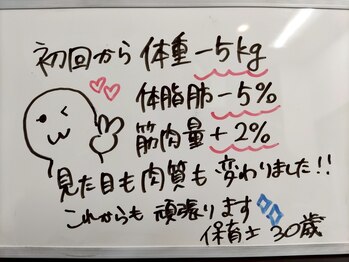 初回から 体重 -5kg
体脂肪 -5%
筋肉量 +2%
見た目も肉質も 変わりました!!
これからも 頑張ります
保育士 30歳